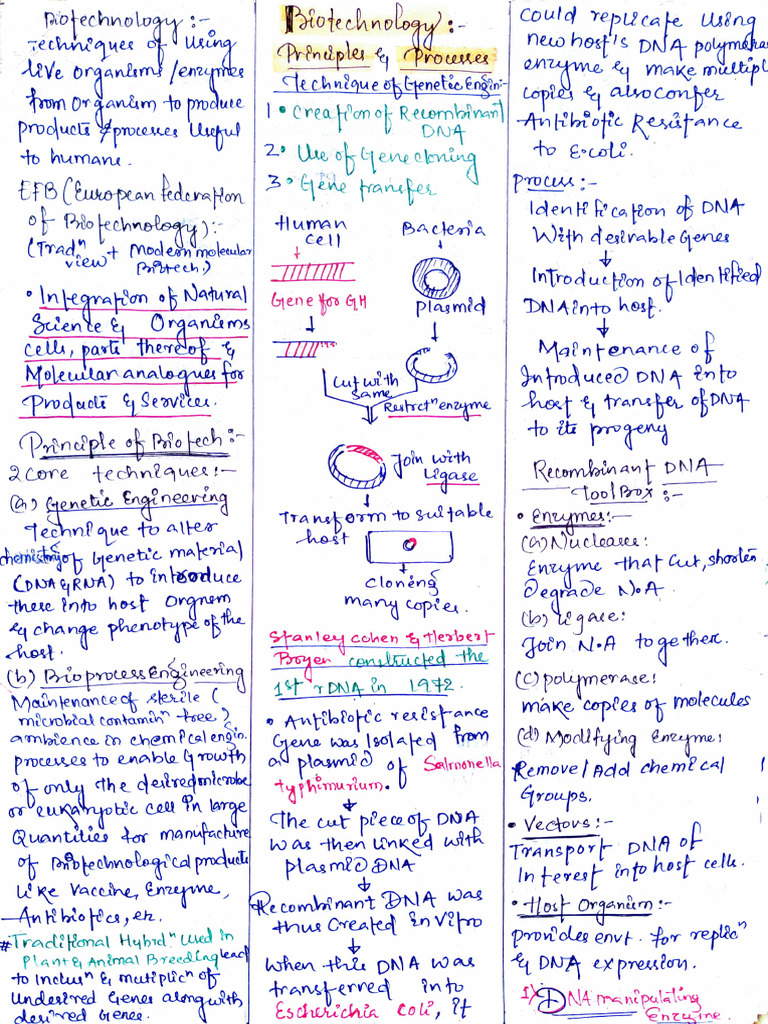 Biotechnology:-
Techniques of Using
live organisms/enzymes
from organism to produce
products & processes Useful
to humans.
EFB (European federation
of Biotechnology):-
(Tradⁿ view + Modern molecular
Biotech.)
• Integration of Natural
Science & Organisms
cells, parts thereof &
Molecular analogues for
Products & Services.
Principle of Biotech:-
2 core techniques:-
(a) Genetic Engineering
Technique to alter
chemistry of Genetic material
(DNA & RNA) to introduce
these into host Orgnsm
& change phenotype of the
host.
(b) Bioprocess Engineering
Maintenance of sterile (
microbial contaminⁿ free)
ambience in chemical engin.
processes to enable Growth
of only the desired microbe
or eukaryotic cell in large
Quantities for manufacture
of Biotechnological products
like Vaccine, Enzyme,
Antibiotics, etc.
# Traditional Hybrdⁿ used in
Plant & Animal Breeding lead
to Inclusⁿ & multiplicⁿ of
Undesired Genes along with
desired Genes.
Biotechnology:-
Principles & Processes
Technique of Genetic Engin:-
1• Creation of Recombinant
DNA
2• Use of Gene cloning
3• Gene transfer
Human
cell
Bacteria
Gene for GH
plasmid
Cut with
same
Restrctⁿ enzyme
Join with
Ligase
Transform to suitable
host
cloning
many copies.
Stanley cohen & Herbert
Boyer constructed the
1st rDNA in 1972.
• Antibiotic resistance
Gene was Isolated from
a plasmid of Salmonella
typhimurium.
The cut piece of DNA
was then linked with
plasmid DNA
Recombinant DNA was
thus Created in Vitro
When this DNA was
transferred into
Escherichia coli, it
Could replicate Using
new host's DNA polymerase
enzyme & make multiple
copies & also confer
Antibiotic Resistance
to E.coli.
Process:-
Identification of DNA
With desirable Genes
Introduction of Identified
DNA into host.
Maintenance of
Introduced DNA into
host & transfer of DNA
to its progeny
Recombinant DNA
Tool Box:-
• Enzymes:-
(a) Nucleases:
Enzyme that cut, shorten
Degrade N.A.
(b) Ligase:
Join N.A together.
(c) polymerase:
make copies of molecules
(d) Modifying Enzyme:
Remove/Add chemical
Groups.
• Vectors:-
Transport DNA of
Interest into host cells.
• Host Organism:-
provides envt. for replicⁿ
& DNA expression.
1) DNA manipulating
Enzyme.